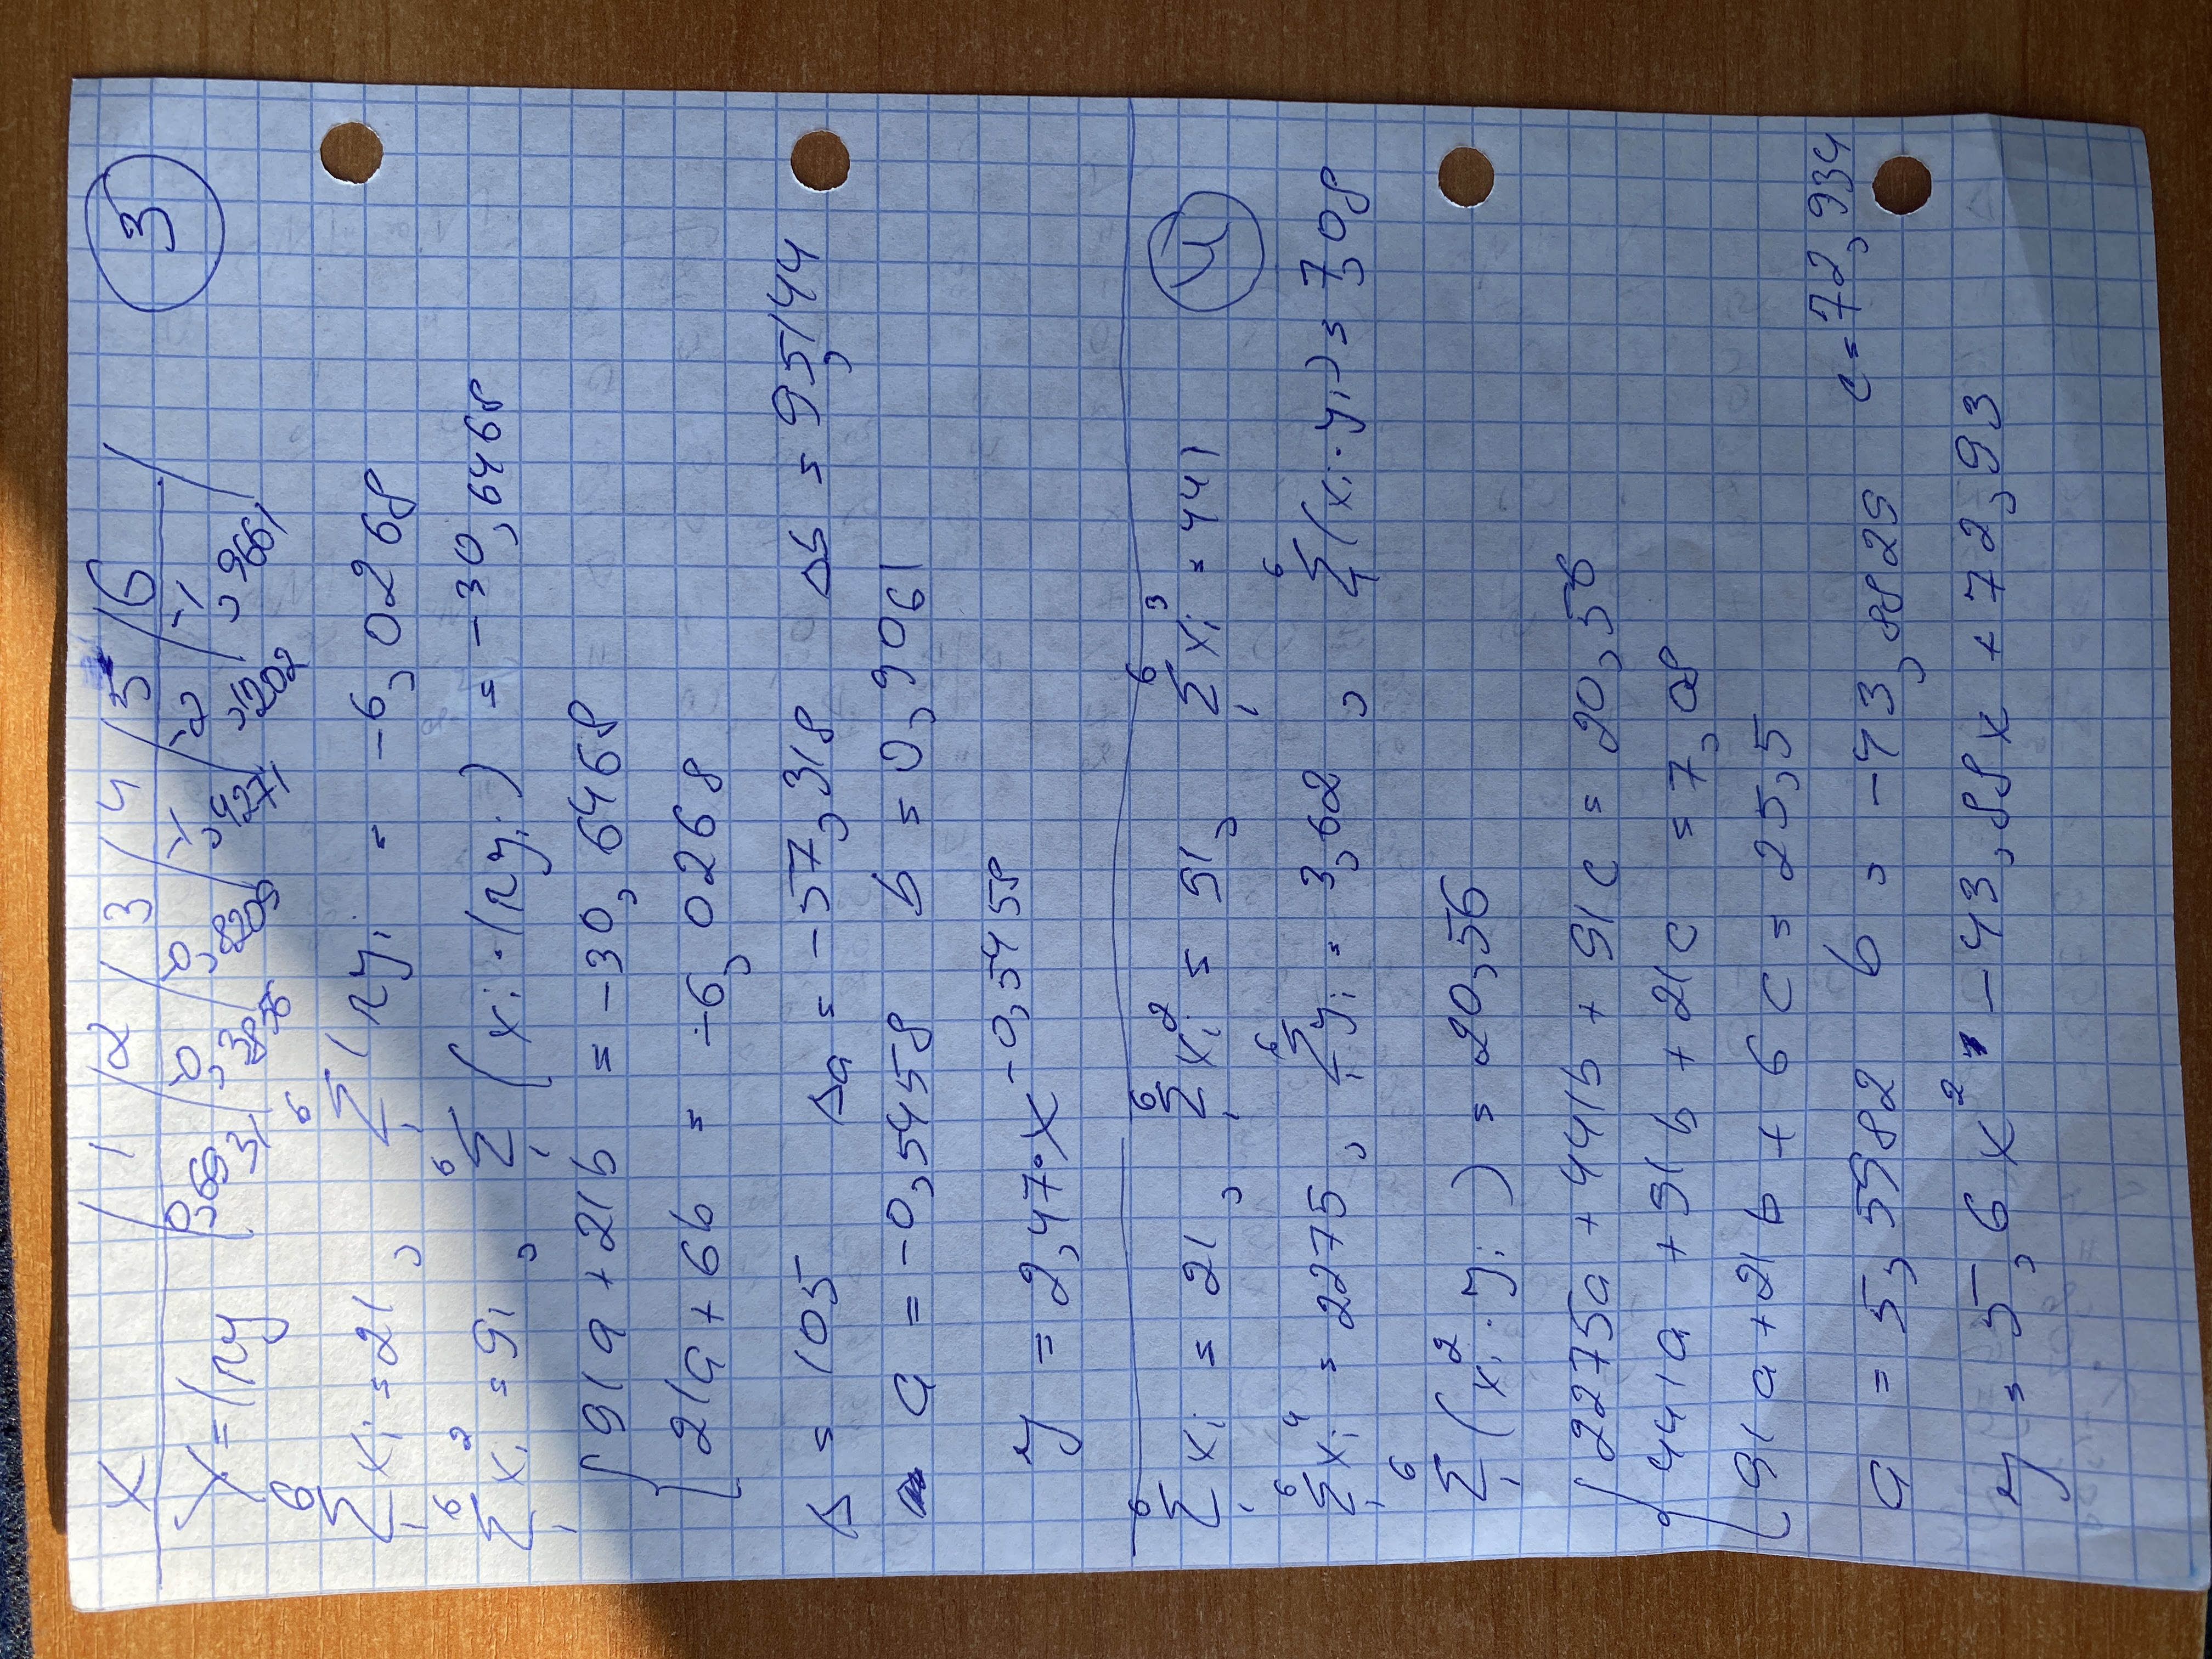 x | 1 | 2 | 3 | 4 | 5 | 6 |
Y = ln y | 0,6931 | -0,3856 | -0,8209 | -1,4271 | -2,1202 | -1,9661 |
③
6∑1 xi = 21, 6∑1 ln yi = -6,0268
6∑1 xi² = 91, 6∑1 (xi · ln yi) = -30,6468
{ 91a + 21b = -30,6468
21a + 6b = -6,0268
Δ = 105 Δa = -57,318 Δb = 95,144
a = -0,5458 b = 0,9061
y = 2,47 · x^-0,5458
6∑1 xi = 21, 6∑1 xi² = 91, 6∑1 xi³ = 441
④
6∑1 xi⁴ = 2275, 6∑1 yi = 3,62, 6∑1 (xi · yi) = 7,08
6∑1 (xi² · yi) = 20,56
{ 2275a + 441b + 91c = 20,56
441a + 91b + 21c = 7,08
91a + 21b + 6c = 25,5
a = 5,5982 b = -43,8829 c = 72,934
y = 5,6x² - 43,88x + 72,93